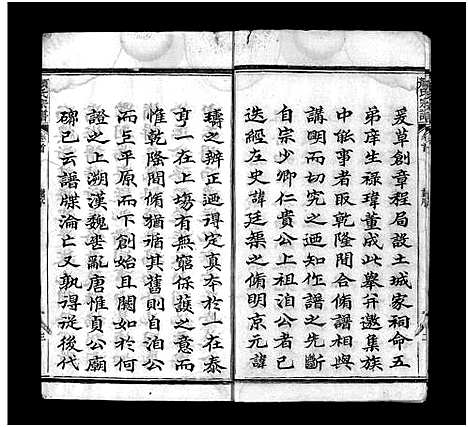 爰草創章程局設土城家祠命五
弟庠生祿瑋董成此舉並邀集族
中能事者取乾隆間合脩譜相與
講明而切究之迺知作譜之先斷
自宗少卿仁貴公上祖泊公者已
迭經左史諱廷槼之脩明京元諱
璹之辨正迺得定真本於一在泰
亨一在上塲有無窮保護之意而
惟乾隆間脩猶循其舊則自泊公
而上平原而下創始且闕如於何
證之上溯漢魏世亂唐惟貞公廟
碑已云譜牒淪亡又孰得從後代
氏宗譜
卷首